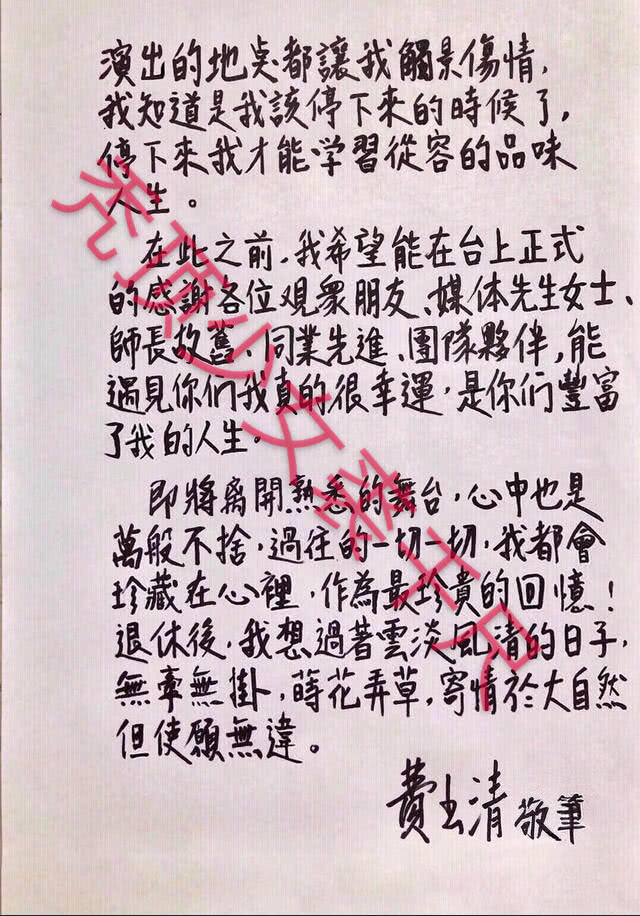 演出的地点都讓我觸景傷情,
我知道是我該停下來的時候了,
停下來我才能学習從容的品味
人生。
在此之前,我希望能在台上正式
的感謝各位观眾朋友、媒体先生女士、
師長故舊、同業先進、團隊夥伴,能
遇見你们我真的很幸運,是你们豐富
了我的人生。
即將离開熟悉的舞台,心中也是
萬般不捨,過往的一切一切,我都會
珍藏在心裡,作為最珍貴的回憶!
退休後,我想過著雲淡風清的日子,
無牽無掛,蒔花弄草,寄情於大自然
但使願無違。
費玉清 敬筆
秃顶少女蔡千尺